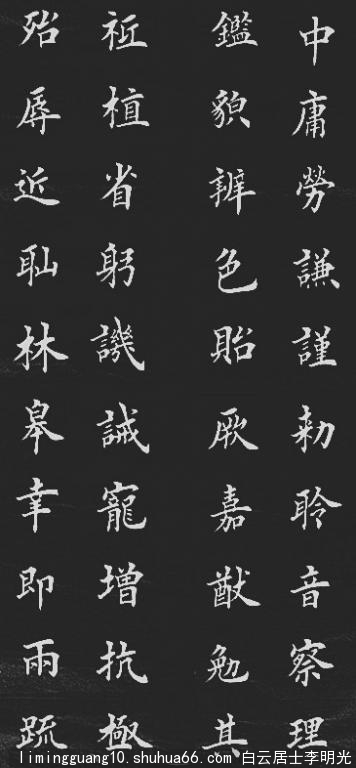 中庸勞謙謹勅聆音察理
鑑貌辨色貽厥嘉猷勉其
祗植省躬譏誡寵增抗極
殆辱近恥林皋幸即兩疏
limingguang10.shuhua66.com 白云居士李明光